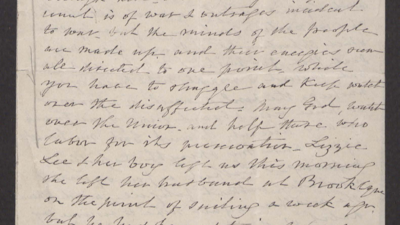 count is of war & outrages incident
to war but the minds of the people
are made up and their energies run
all directed to one point while
you have to struggle and keep watch
over the disaffected. May God watch
over the Union and help those who
labor for its preservation. Lizzie
Lee & her boy left us this morning
She left her husband at Brooklyn
on the point of sailing a week ago
but he